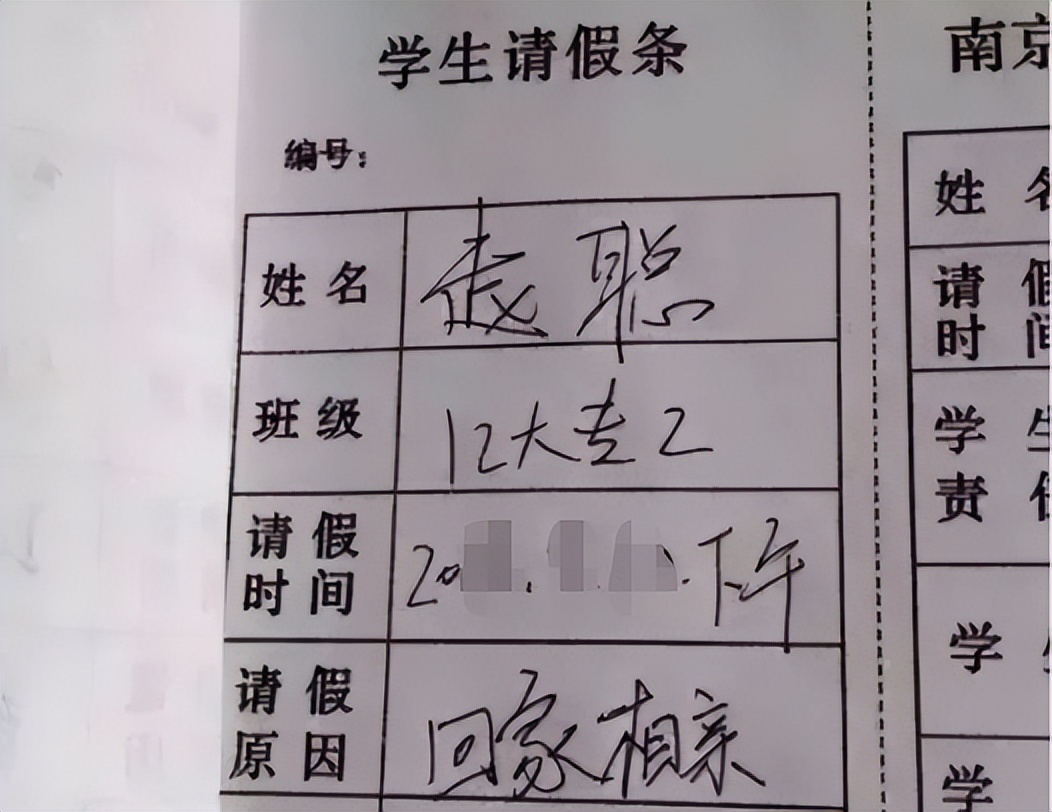 学生请假条
编号:
姓名 赵聪
班级 12大专2
请假时间 20 . . .下午
请假原因 回家相亲
南京
姓名
请假
时间
学生
责任
学
学